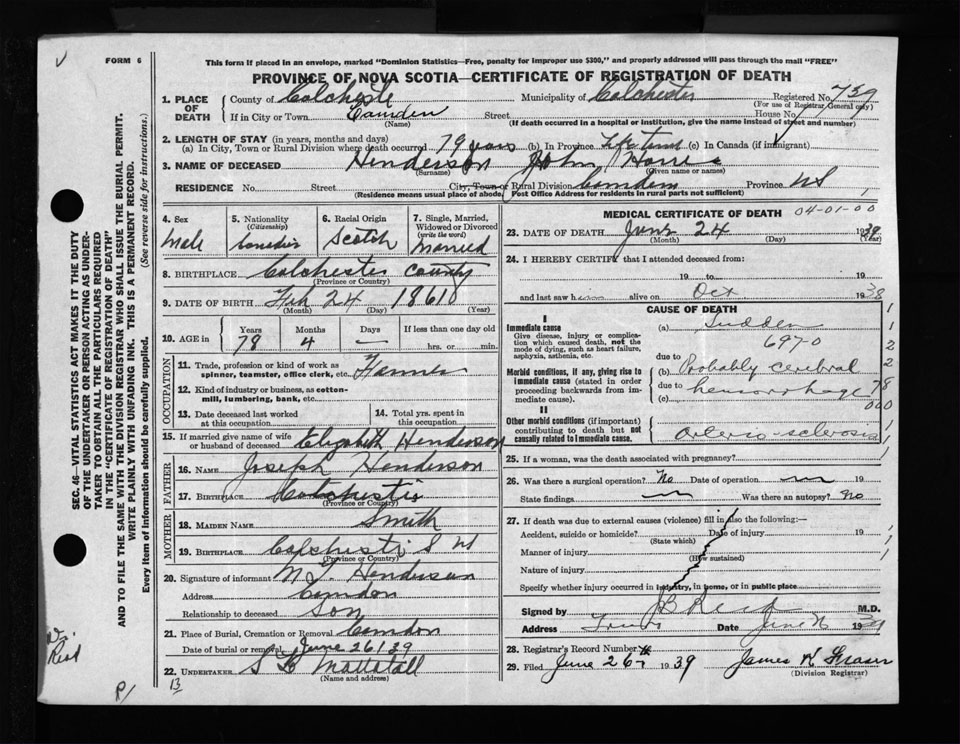 FORM 6
This form if placed in an envelope, marked "Dominion Statistics—Free, penalty for improper use $300," and properly addressed will pass through the mail "FREE"
PROVINCE OF NOVA SCOTIA—CERTIFICATE OF REGISTRATION OF DEATH
1. PLACE OF DEATH
County of Colchester Municipality of Colchester Registered No. 739
(For use of Registrar General only)
If in City or Town Camden Street House No.
(Name) (If death occurred in a hospital or institution, give the name instead of street and number)
2. LENGTH OF STAY (in years, months and days)
(a) In City, Town or Rural Division where death occurred 79 years (b) In Province Life time (c) In Canada (if immigrant)
3. NAME OF DECEASED Henderson John
(Surname) (Given name or names)
RESIDENCE No. Street City, Town or Rural Division Camden Province NS
(Residence means usual place of abode. Post Office Address for residents in rural parts not sufficient)
4. Sex
Male
5. Nationality
(Citizenship)
Canadian
6. Racial Origin
Scotch
7. Single, Married, Widowed or Divorced
(write the word)
Married
8. BIRTHPLACE Colchester County
(Province or Country)
9. DATE OF BIRTH Feb 24 1861
(Month) (Day) (Year)
10. AGE in
Years Months Days If less than one day
78 4 — hrs. or min.
OCCUPATION
11. Trade, profession or kind of work as spinner, teamster, office clerk, etc. Farmer
12. Kind of industry or business, as cotton-mill, lumbering, bank, etc.
13. Date deceased last worked at this occupation
14. Total yrs. spent in this occupation
15. If married give name of wife or husband of deceased Elizabeth Henderson
FATHER
16. NAME Joseph Henderson
17. BIRTHPLACE Colchester
(Province or Country)
MOTHER
18. MAIDEN NAME Smith
19. BIRTHPLACE Colchester NS
(Province or Country)
20. Signature of informant Henderson
Address Camden
Relationship to deceased Son
21. Place of Burial, Cremation or Removal Camden
Date of burial or removal June 26/39
22. UNDERTAKER S Mattatall
(Name and address)
13
MEDICAL CERTIFICATE OF DEATH
04-01-00
23. DATE OF DEATH June 24 1939
(Month) (Day) (Year)
24. I HEREBY CERTIFY that I attended deceased from:
19 to 19
and last saw him alive on Oct 1938
CAUSE OF DEATH
I
Immediate cause
Give disease, injury or complication which caused death, not the mode of dying, such as heart failure, asphyxia, asthenia, etc.
(a) Sudden
6970
due to
Morbid conditions, if any, giving rise to immediate cause (stated in order proceeding backwards from immediate cause).
(b) Probably cerebral
due to hemorrhage
(c)
II
Other morbid conditions (if important) contributing to death but not causally related to immediate cause.
Arterio-sclerosis
25. If a woman, was the death associated with pregnancy?
26. Was there a surgical operation? No Date of operation 19
State findings Was there an autopsy? No
27. If death was due to external causes (violence) fill in also the following:—
Accident, suicide or homicide? Date of injury 19
(State which)
Manner of injury
(How sustained)
Nature of injury
Specify whether injury occurred in industry, in home, or in public place
Signed by Reid M.D.
Address Truro Date June 1939
28. Registrar's Record Number
29. Filed June 26 1939 James Fraser
(Division Registrar)
SEC. 46—VITAL STATISTICS ACT MAKES IT THE DUTY OF THE UNDERTAKER OR PERSON ACTING AS UNDERTAKER TO OBTAIN ALL THE PARTICULARS REQUIRED IN THE "CERTIFICATE OF REGISTRATION OF DEATH" AND TO FILE THE SAME WITH THE DIVISION REGISTRAR WHO SHALL ISSUE THE BURIAL PERMIT.
WRITE PLAINLY WITH UNFADING INK. THIS IS A PERMANENT RECORD.
Every item of Information should be carefully supplied. (See reverse side for instructions.)
Reid